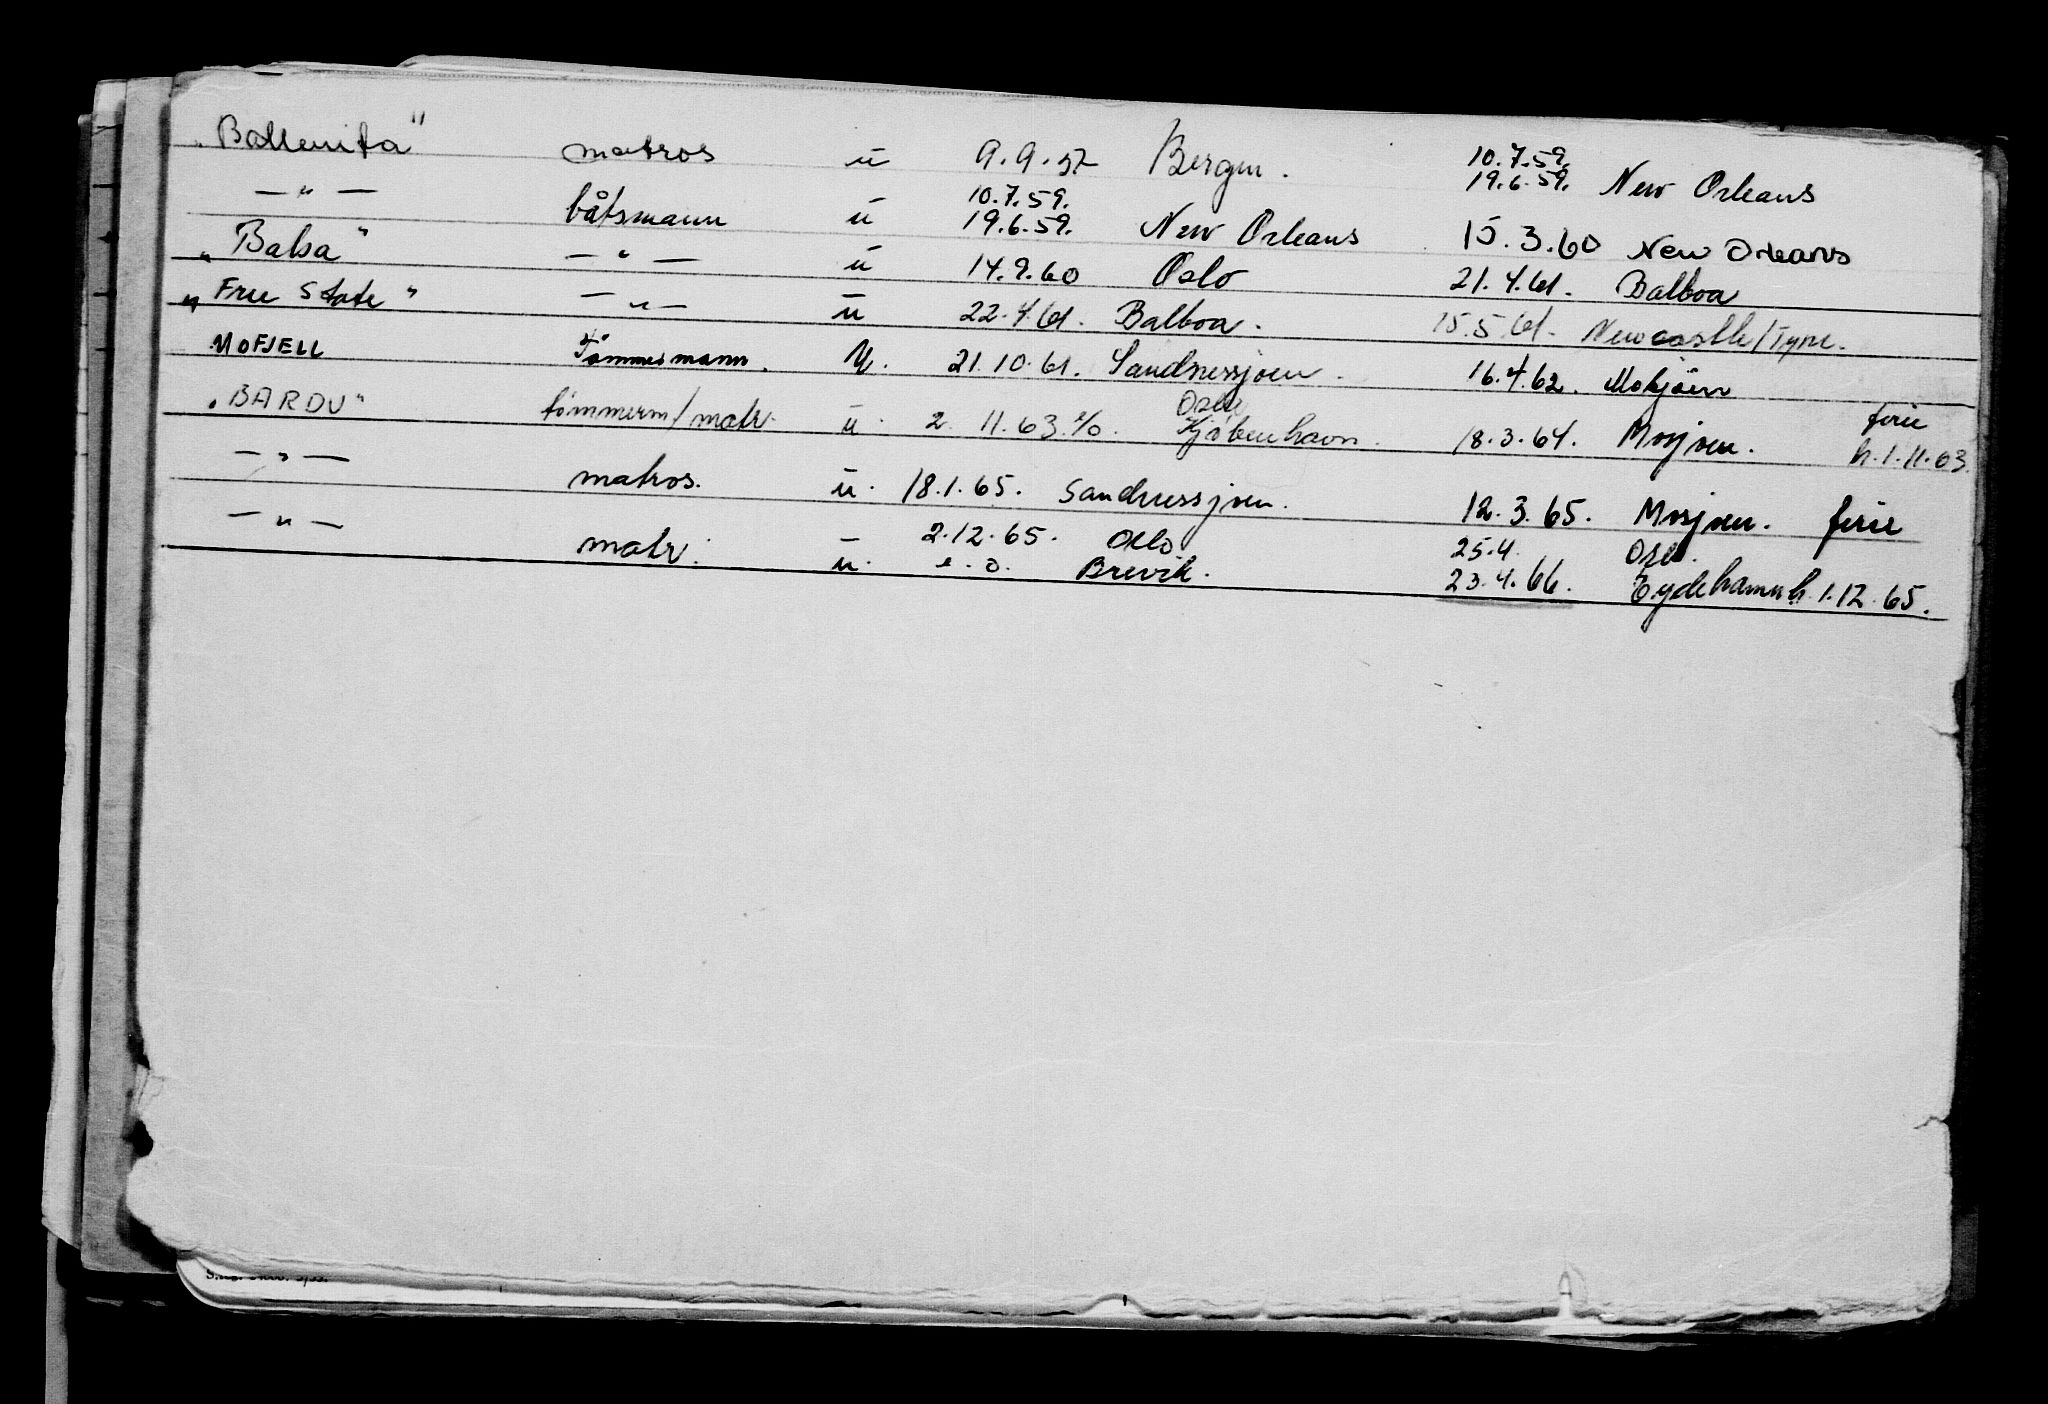 „Ballenita" matros u 9.9.57 Bergen. 10.7.59. 19.6.59. New Orleans
— " — båtsmann u 10.7.59. 19.6.59. New Orleans 15.3.60 New Orleans
„Balsa" — " — u 14.9.60 Oslo 21.4.61. Balboa
„Free State" — " — u 22.4.61. Balboa. 15.5.61. Newcastle/Tyne.
MOFJELL Tømmermann. u. 21.10.61. Sandnessjøen. 16.4.62. Mosjøen
„BARDU" tømmerm/matr. u. 2. 11.63. e/o. Oslo Kjøbenhavn. 18.3.64. Mosjøen. ferie h.1.11.63
— " — matros. u. 18.1.65. Sandnessjøen. 12.3.65. Mosjøen. ferie
— " — matr. u. 2.12.65. Oslo e.o. Brevik. 25.4. Oslo. 23.4.66. Eydehamn h.1.12.65.